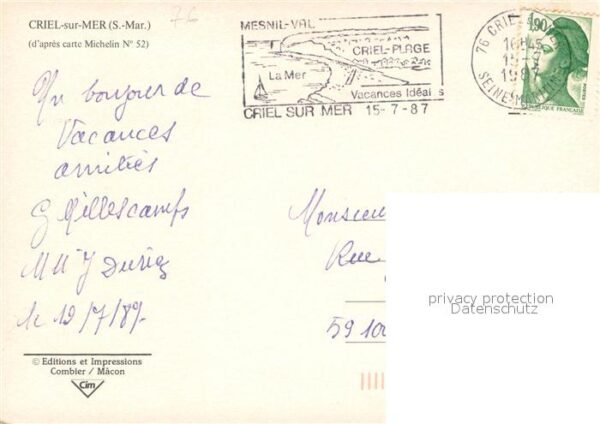 CRIEL-sur-MER (S.-Mar.)
(d'après carte Michelin N° 52)
76
MESNIL-VAL
CRIEL-PLAGE
La Mer
Vacances Idéales
CRIEL SUR MER 15-7-87
76 CRIEL
16H45
15-7
1987
SEINE MARITIME
1,90
RÉPUBLIQUE FRANÇAISE
Un bonjour de
Vacances
amitiés
G Millescamps
J
le 12/7/87
Monsieur
Rue
59100
privacy protection
Datenschutz
© Editions et Impressions
Combier / Mâcon
Cim